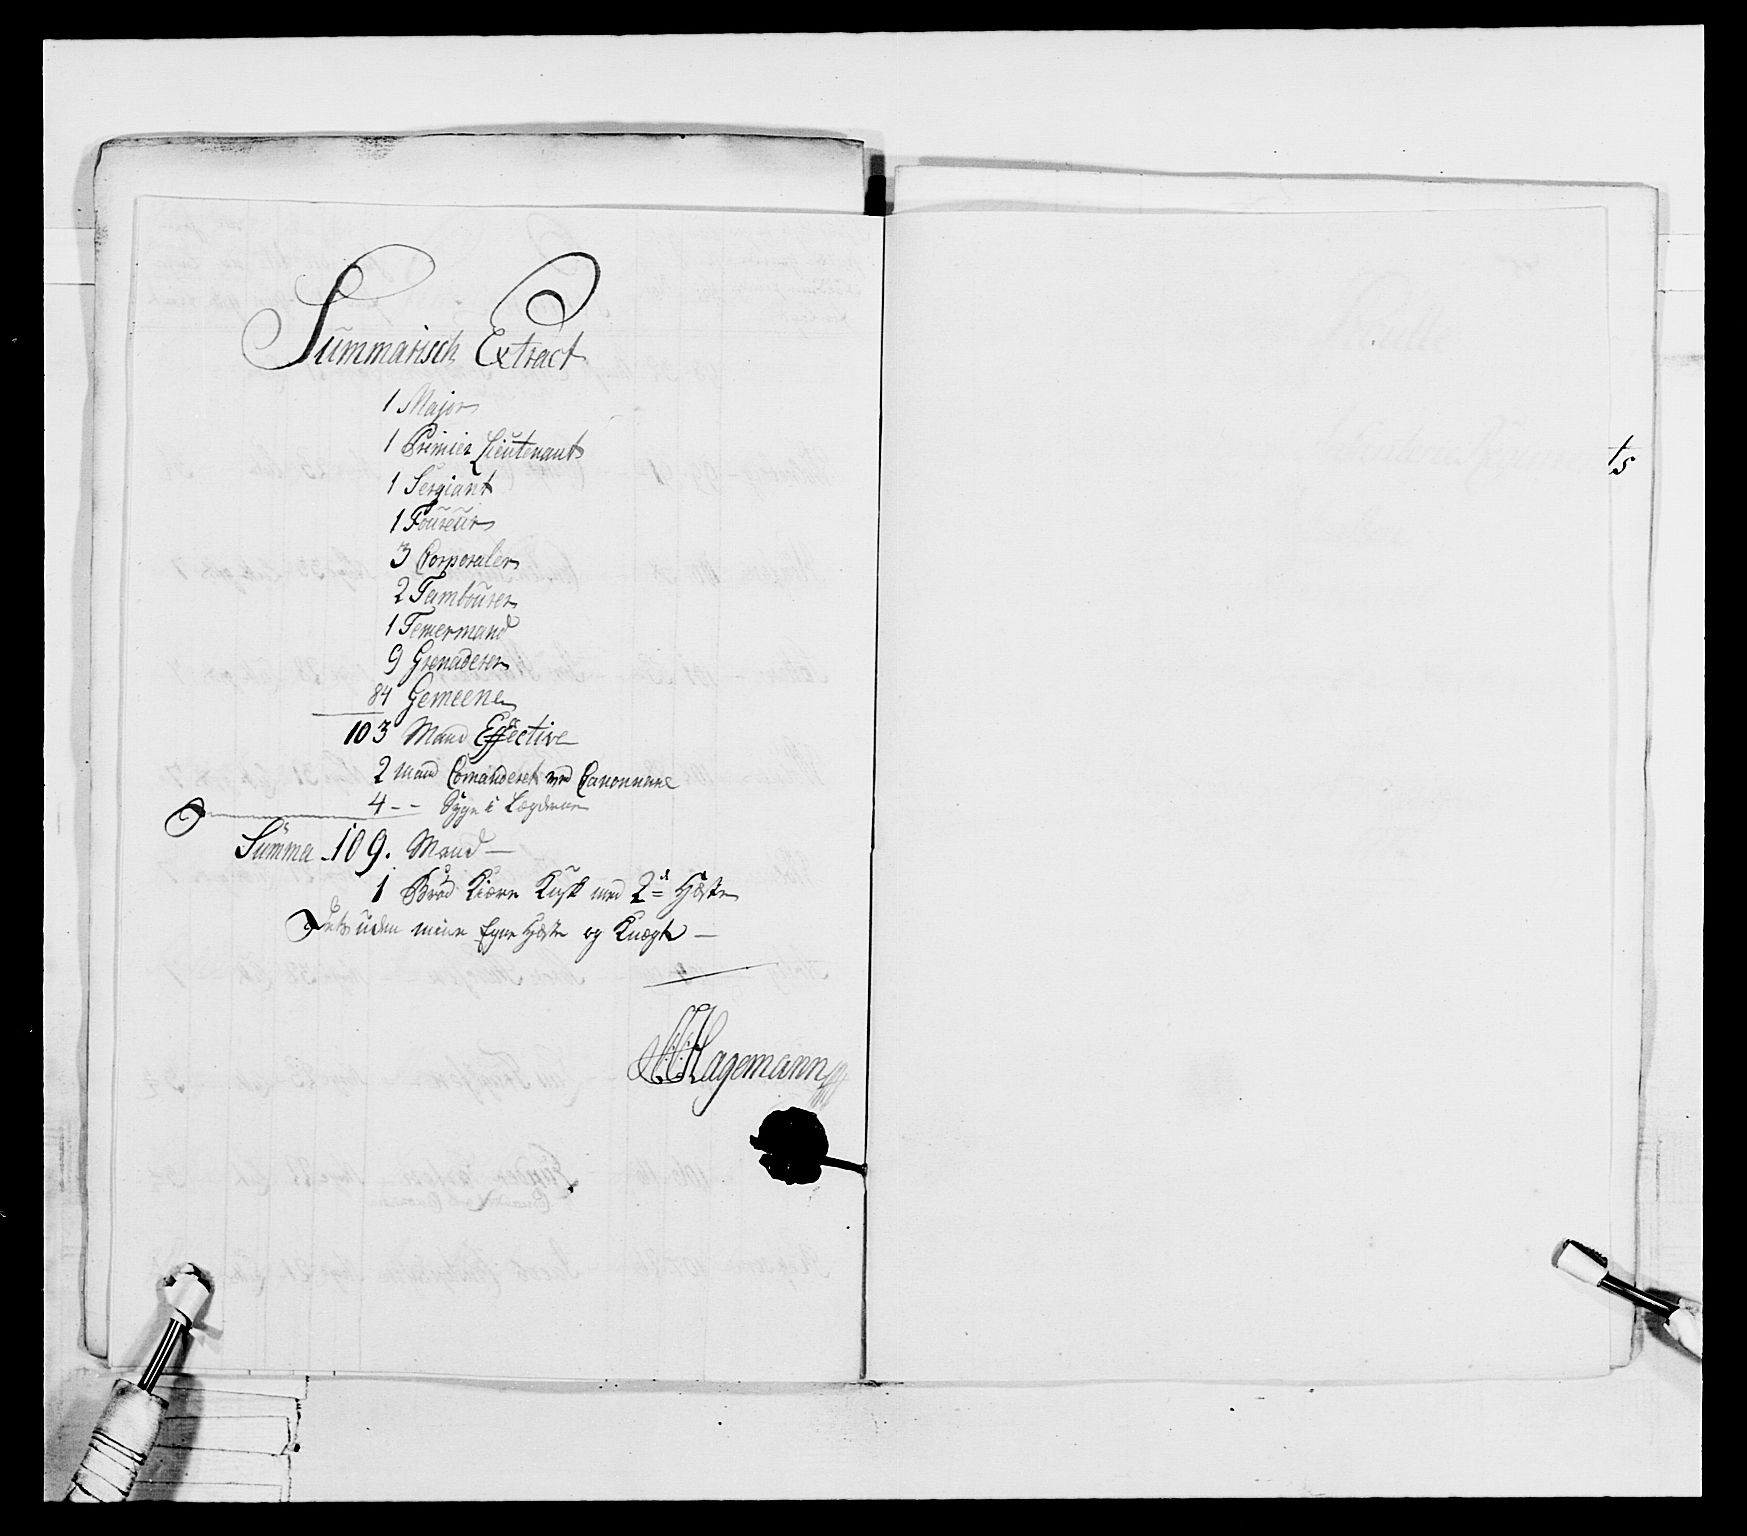 Summarisch Extract
1 Major
1 Primier Lieutenant
1 Sergiant
1 Foureur
3 Corporaler
2 Tambourer
1 Temermand
9 Grenaderer
84 Gemeene
103 Mand Effective
2 Mand Comanderet ved Canonnerne
4 - - Syge i Lægderne
Summa 109. Mand —
1 Brød Kiære Kusk med 2de Heste
Dets uden mine Egne Heste og Knægt —
Hagemann